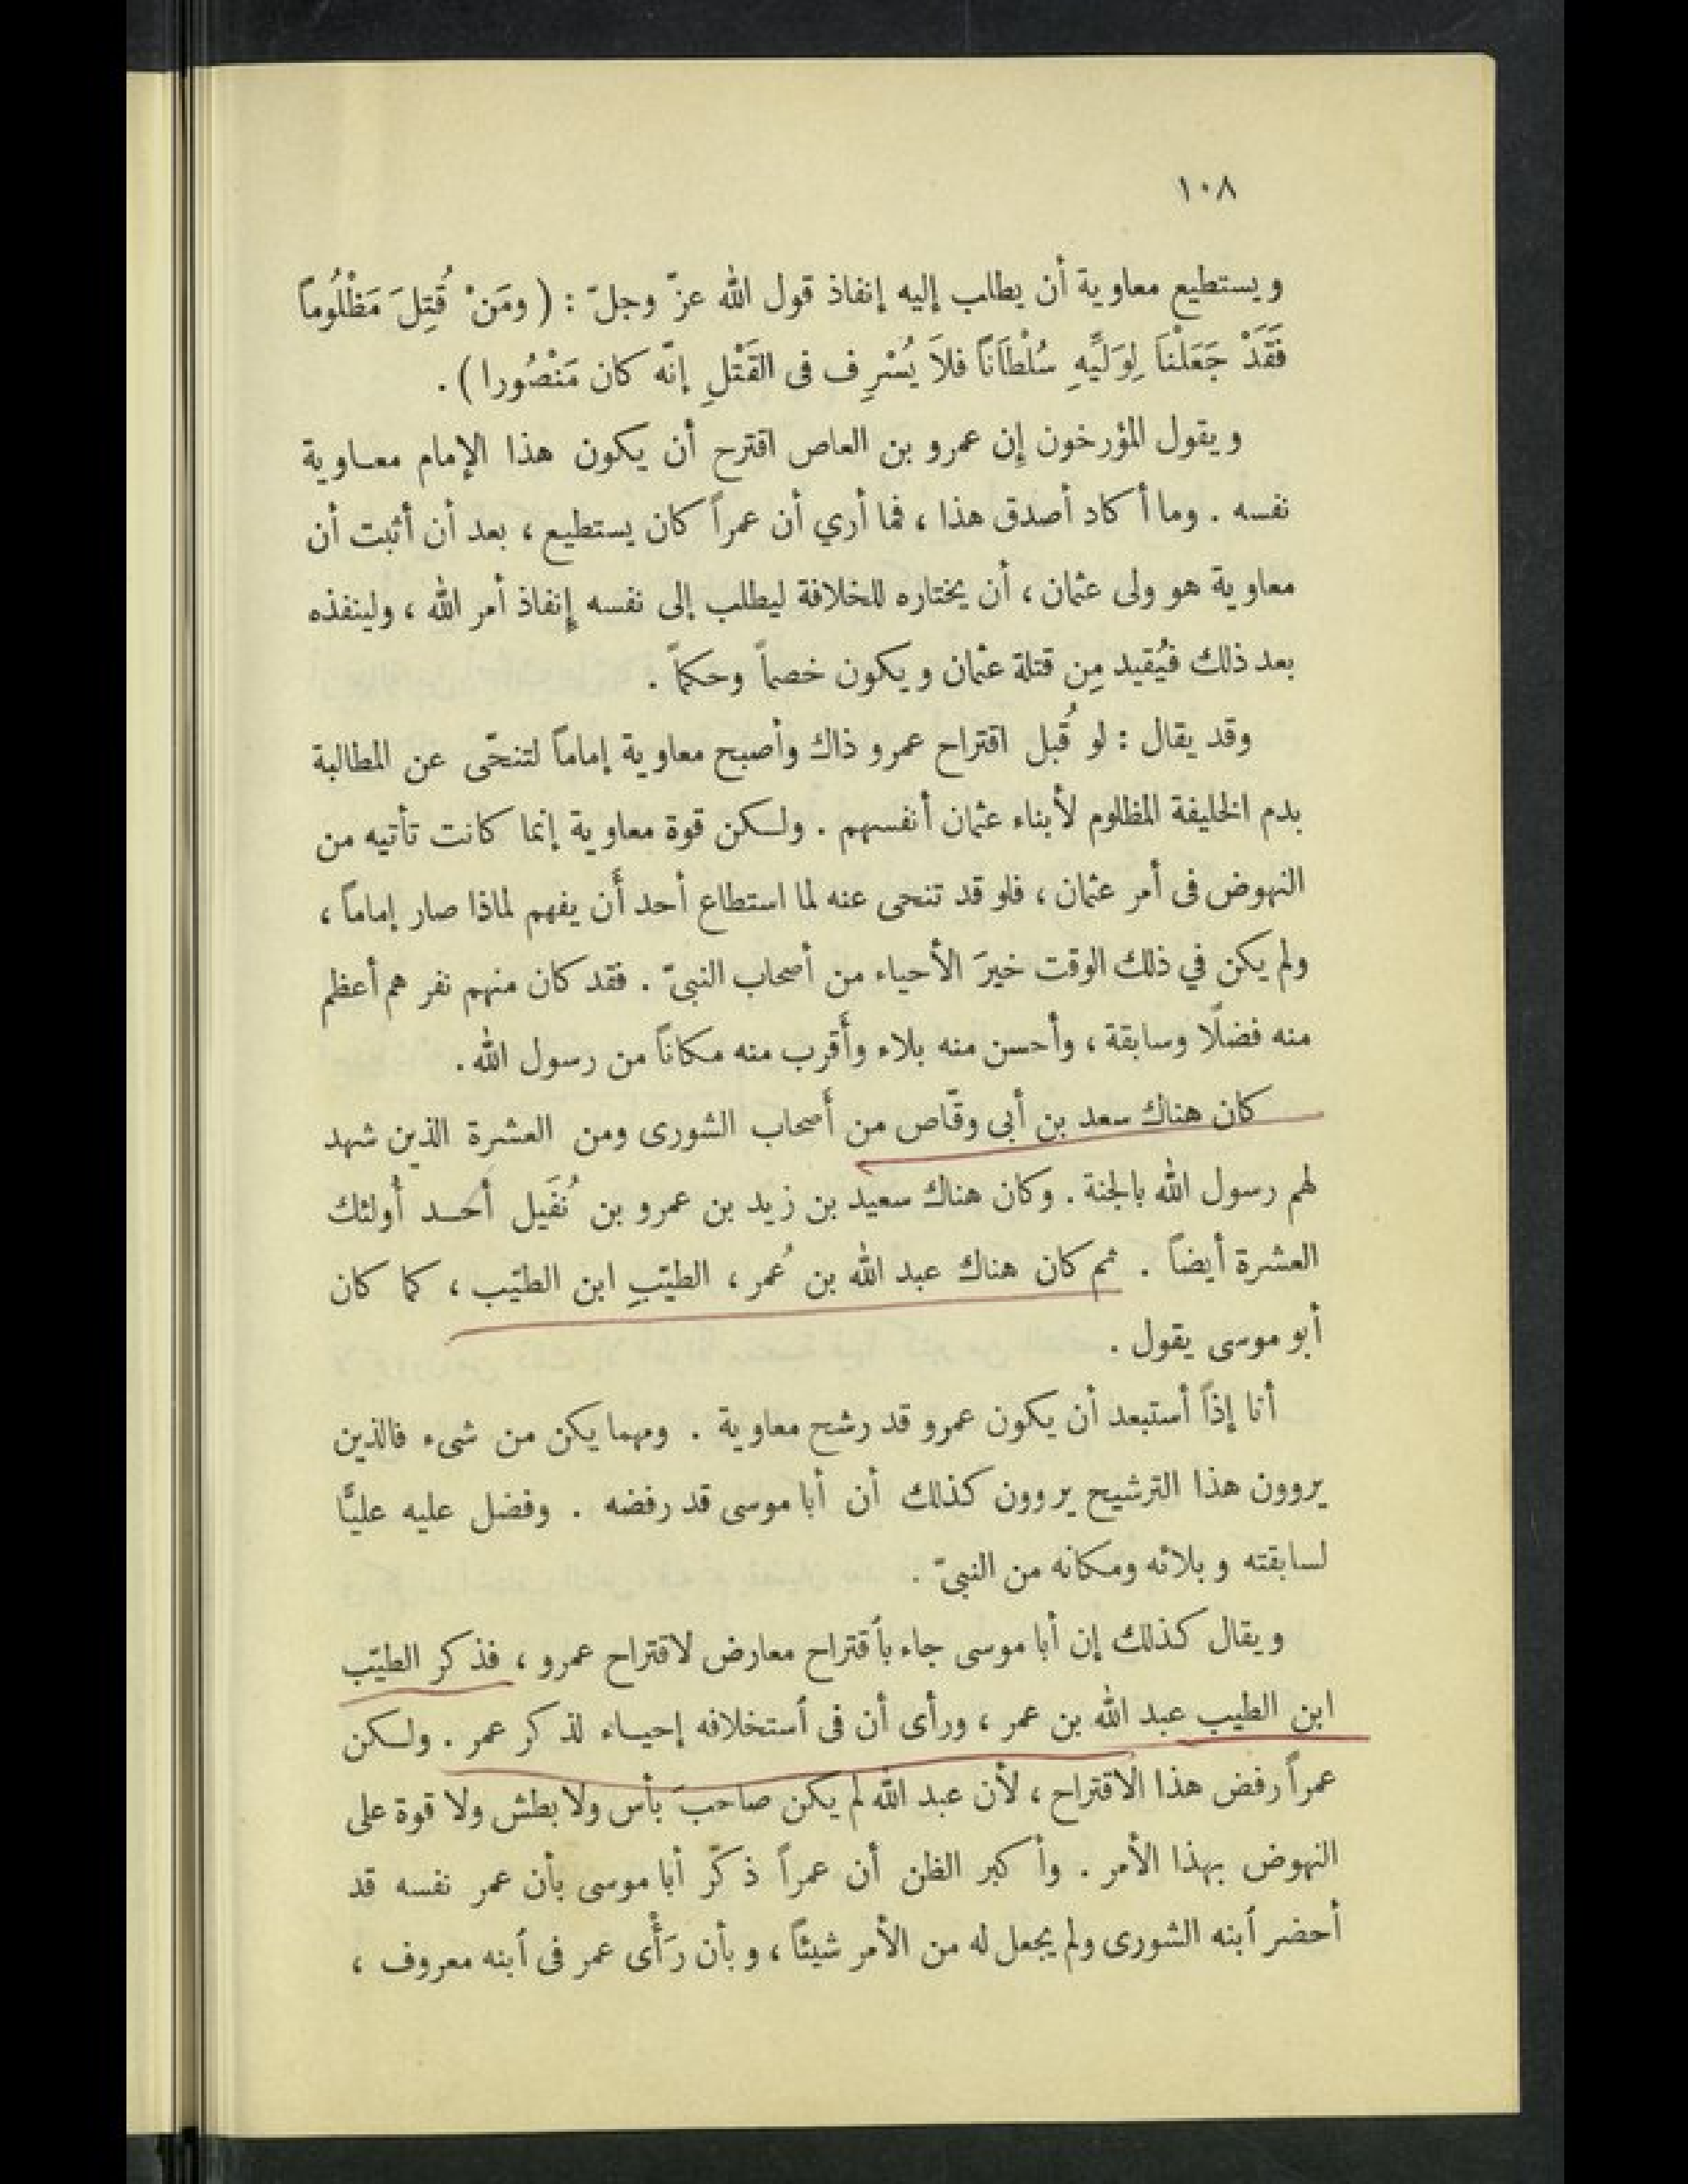 ١٠٨
ويستطيع معاوية أن يطلب إليه إنفاذ قول الله عزّ وجلّ : ( ومَنْ قُتِلَ مَظْلُوماً
فَقَدْ جَعَلْنَا لِوَلِيِّهِ سُلْطَاناً فلاَ يُسْرِف فى القَتْلِ إنّه كان مَنْصُورا ) .
ويقول المؤرخون إن عمرو بن العاص اقترح أن يكون هذا الإمام معاوية
نفسه . وما أكاد أصدق هذا ، فما أري أن عمراً كان يستطيع ، بعد أن أثبت أن
معاوية هو ولى عثمان ، أن يختاره للخلافة ليطلب إلى نفسه إنفاذ أمر الله ، ولينفذه
بعد ذلك فيُقيد مِن قتلة عثمان ويكون خصماً وحكماً .
وقد يقال : لو قُبل اقتراح عمرو ذاك وأصبح معاوية إماماً لتنحّى عن المطالبة
بدم الخليفة المظلوم لأبناء عثمان أنفسهم . ولكن قوة معاوية إنما كانت تأتيه من
النهوض فى أمر عثمان ، فلو قد تنحى عنه لما استطاع أحد أَن يفهم لماذا صار إماماً ،
ولم يكن في ذلك الوقت خيرَ الأحياء من أصحاب النبىّ . فقد كان منهم نفر هم أعظم
منه فضلًا وسابقة ، وأحسن منه بلاء وأَقرب منه مكاناً من رسول الله .
كان هناك سعد بن أبى وقّاص من أَصحاب الشورى ومن العشرة الذين شهد
لهم رسول الله بالجنة . وكان هناك سعيد بن زيد بن عمرو بن نُفَيل أحد أولئك
العشرة أيضاً . ثم كان هناك عبد الله بن عُمر ، الطيّبِ ابن الطيّب ، كما كان
أبو موسى يقول .
أنا إذاً أستبعد أن يكون عمرو قد رشح معاوية . ومهما يكن من شىء فالذين
يروون هذا الترشيح يروون كذلك أن أبا موسى قد رفضه . وفضل عليه عليًّا
لسابقته وبلائه ومكانه من النبىّ .
ويقال كذلك إن أبا موسى جاء باقتراح معارض لاقتراح عمرو ، فذكر الطيّب
ابن الطيب عبد الله بن عمر ، ورأى أن فى استخلافه إحياء لذكر عمر . ولكن
عمراً رفض هذا الاقتراح ، لأن عبد الله لم يكن صاحبَ بأس ولا بطش ولا قوة على
النهوض بهذا الأمر . وأكبر الظن أن عمراً ذكّر أبا موسى بأن عمر نفسه قد
أحضر ابنه الشورى ولم يجعل له من الأمر شيئاً ، وبأن رَأْى عمر فى ابنه معروف ،